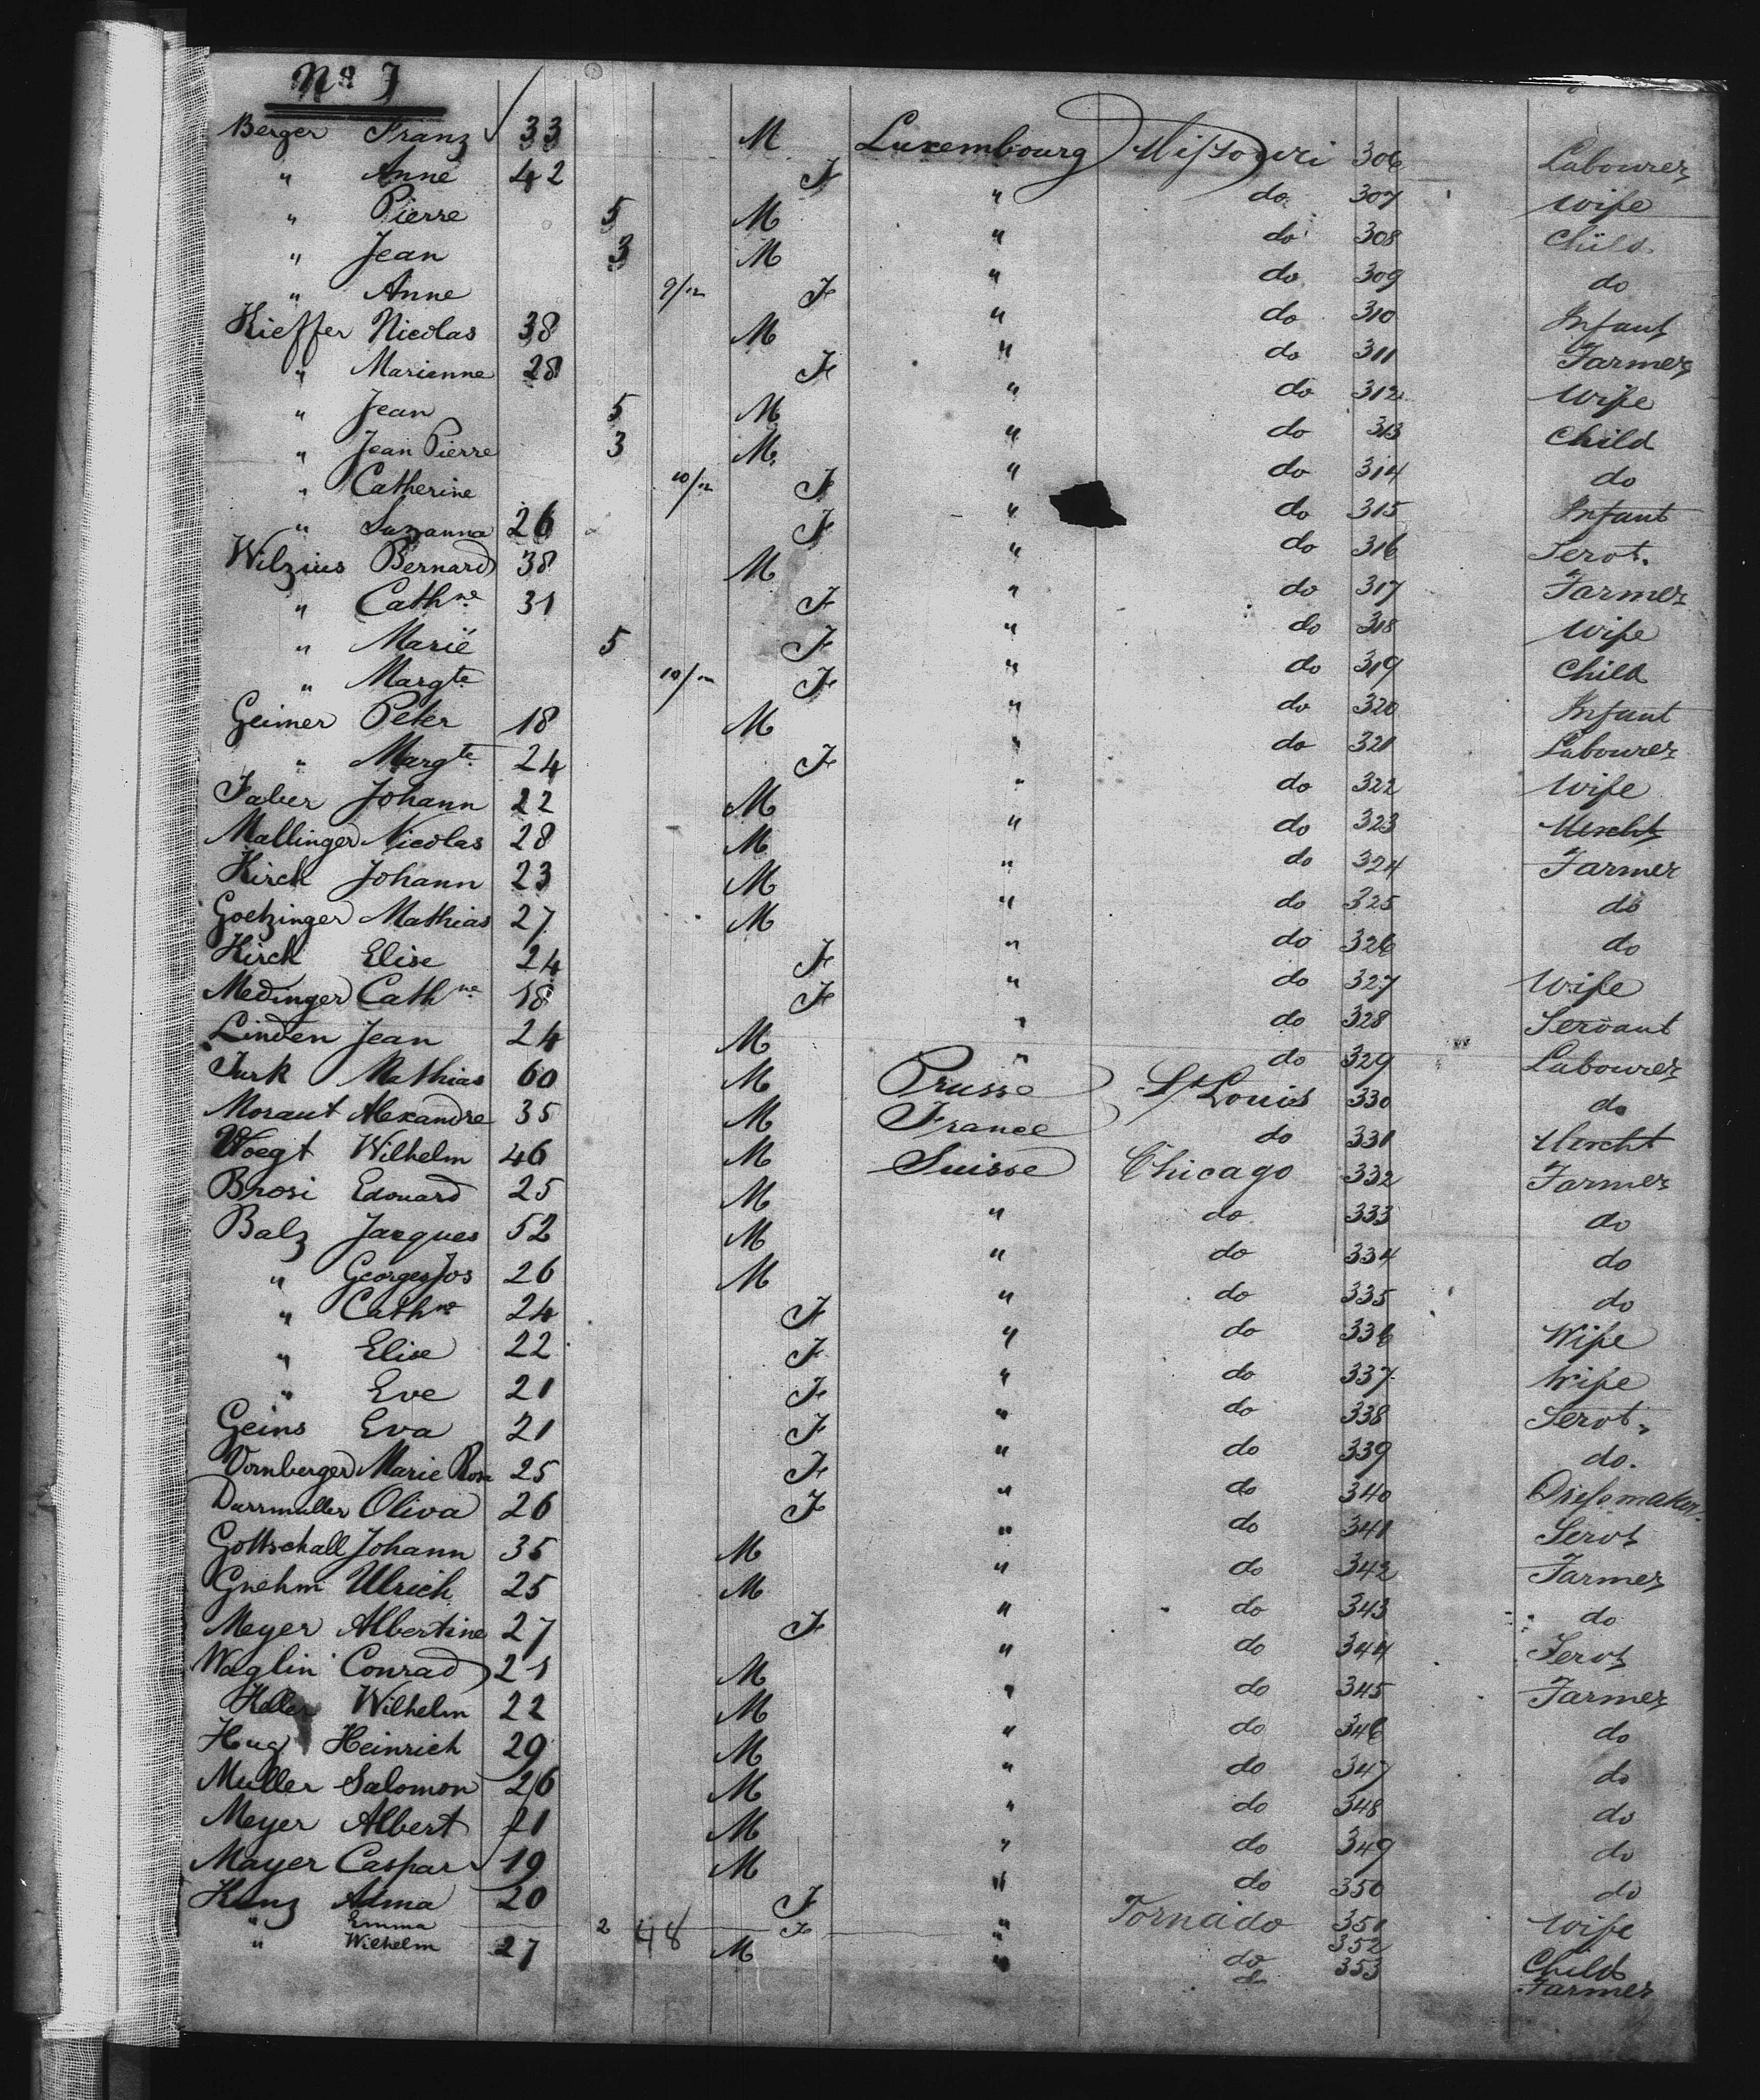 No 7
Berger Franz 33 M Luxembourg Missouri 306 Labourer
" Anne 42 F " do 307 Wife
" Pierre 5 M " do 308 Child
" Jean 3 M " do 309 do
" Anne 9/12 F " do 310 Infant
Kieffer Nicolas 38 M " do 311 Farmer
" Marienne 28 F " do 312 Wife
" Jean 5 M " do 313 Child
" Jean Pierre 3 M " do 314 do
" Catherine 10/12 F " do 315 Infant
" Suzanna 26 F " do 316 Servt.
Wilzius Bernard 38 M " do 317 Farmer
" Cathne 31 F " do 318 Wife
" Marie 5 F " do 319 Child
" Margte 10/12 F " do 320 Infant
Geimer Peter 18 M " do 321 Labourer
" Margte 24 F " do 322 Wife
Faber Johann 22 M " do 323 Mercht
Mallinger Nicolas 28 M " do 324 Farmer
Kirch Johann 23 M " do 325 do
Goetzinger Mathias 27 M " do 326 do
Kirch Elise 24 F " do 327 Wife
Medinger Cathne 18 F " do 328 Servant
Linden Jean 24 M " do 329 Labourer
Turk Mathias 60 M Prusse St Louis 330 do
Moraut Alexandre 35 M France do 331 Mercht
Woegt Wilhelm 46 M Suisse Chicago 332 Farmer
Brosi Edouard 25 M " do 333 do
Balz Jacques 52 M " do 334 do
" Georges Jos 26 M " do 335 do
" Cathne 24 F " do 336 Wife
" Elise 22 F " do 337 Wife
" Eve 21 F " do 338 Servt.
Geins Eva 21 F " do 339 do.
Vornberger Marie Rosa 25 F " do 340 Dressmaker
Durrmuller Oliva 26 F " do 341 Servt
Gottschall Johann 35 M " do 342 Farmer
Gnehm Ulrich 25 M " do 343 do
Meyer Albertine 27 F " do 344 Servt
Waglin Conrad 21 M " do 345 Farmer
Keller Wilhelm 22 M " do 346 do
Hug Heinrich 29 M " do 347 do
Muller Salomon 26 M " do 348 do
Meyer Albert 21 M " do 349 do
Mayer Caspar 19 M " do 350 do
Kunz Adma 20 F " Tornado 351 Wife
" Emma 2 48 F " do 352 Child
" Wilhelm 27 M " do 353 Farmer